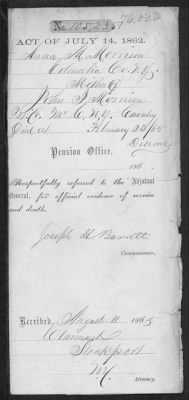 No. 105,235
ACT OF JULY 14, 1862.
Anna M. Morrison
Columbia Co. N.Y.
Mother of
John J. Morrison
N.Y. Cavalry
Died at February 23/65
Disease
Pension Office,
186
Respectfully referred to the Adjutant
General, for official evidence of service
and death.
Joseph H Barrett
Commissioner.
Received, August 11 1865
Stockport
N.Y.
Attorney.